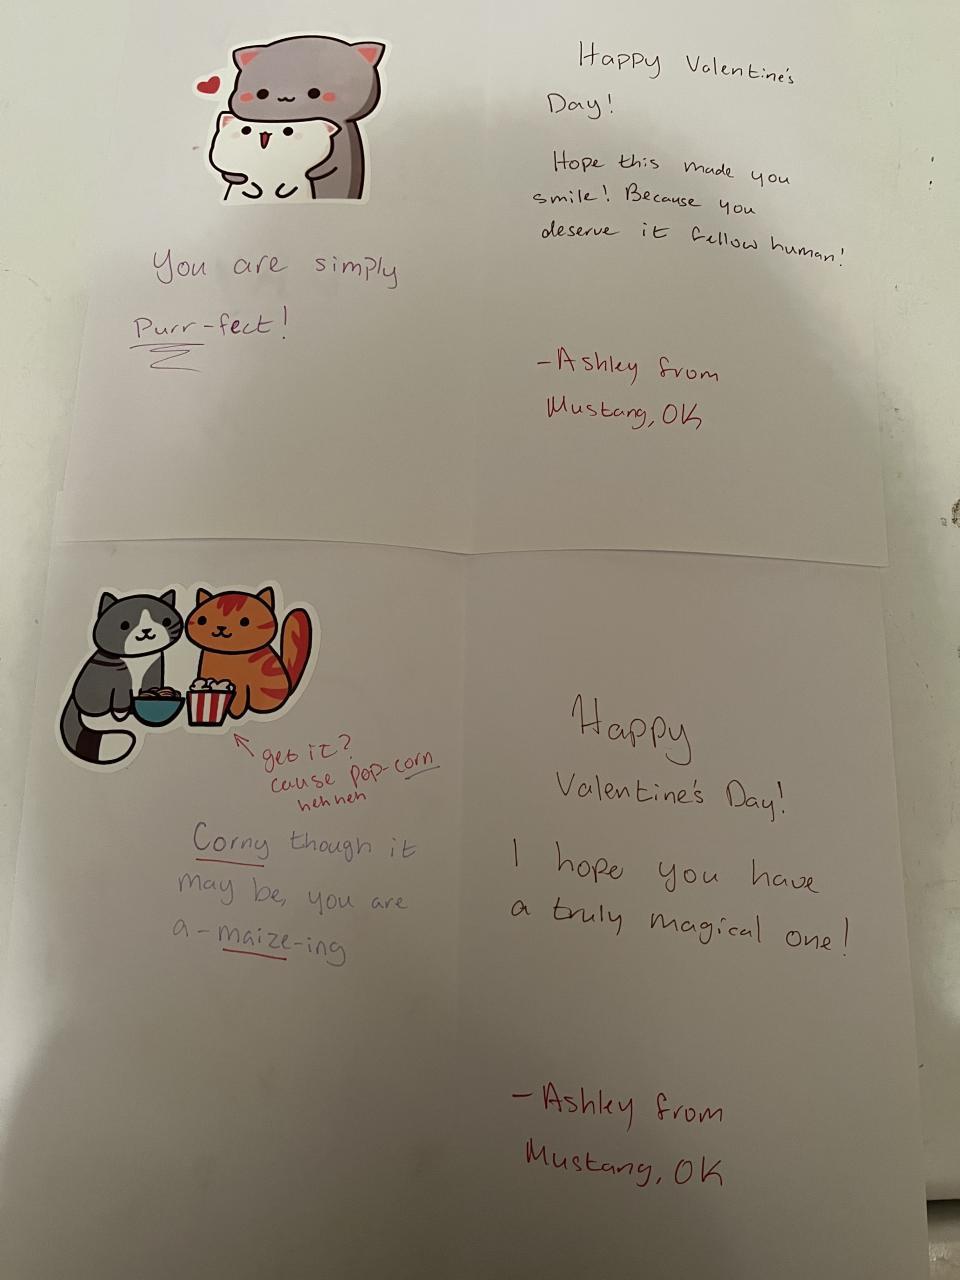 You are simply
Purr-fect!
Happy Valentine's
Day!
Hope this made you
smile! Because you
deserve it fellow human!
-Ashley from
Mustang, OK
get it?
cause pop-corn
heh heh
Corny though it
may be, you are
a-maize-ing
Happy
Valentine's Day!
I hope you have
a truly magical one!
-Ashley from
Mustang, OK